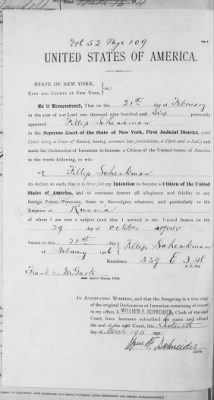 Vol 52 Page 109
UNITED STATES OF AMERICA.
STATE OF NEW YORK,
CITY AND COUNTY OF NEW YORK, ss:
Be it Remembered, That on the 21st day of February
in the year of our Lord one thousand nine hundred and Six personally
appeared Fillip Scheukman
in the Supreme Court of the State of New York, First Judicial District, (said
Court being a Court of Record, having common law jurisdiction, a Clerk and a Seal) and
made his Declaration of Intention to become a Citizen of the United States of America
in the words following, to wit:
I Fillip Scheukman
do declare on oath, that it is bona fide my Intention to become a Citizen of the United
States of America, and to renounce forever all allegiance and fidelity to any
foreign Prince, Potentate, State or Sovereignty whatever, and particularly to the
Emperor of Russia
of whom I am now a subject (and that I arrived in the United States on the
29 day of October 1905
Sworn to this 21st day
of February 1906
Fillip Scheukman
Residence 329 E 3 St
IN ATTESTATION WHEREOF, and that the foregoing is a true copy
of the original Declaration of Intention remaining of record
in my office, I, WILLIAM F. SCHNEIDER, Clerk of the said
Court, have hereunto subscribed my name and affixed
the seal of the said Court, this
day of March 1911
Wm F. Schneider
Clerk.